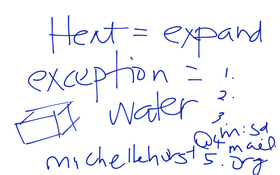 Heat = expand
exception = 1.
2.
water 3.
michellehurst@
mail.
5. org